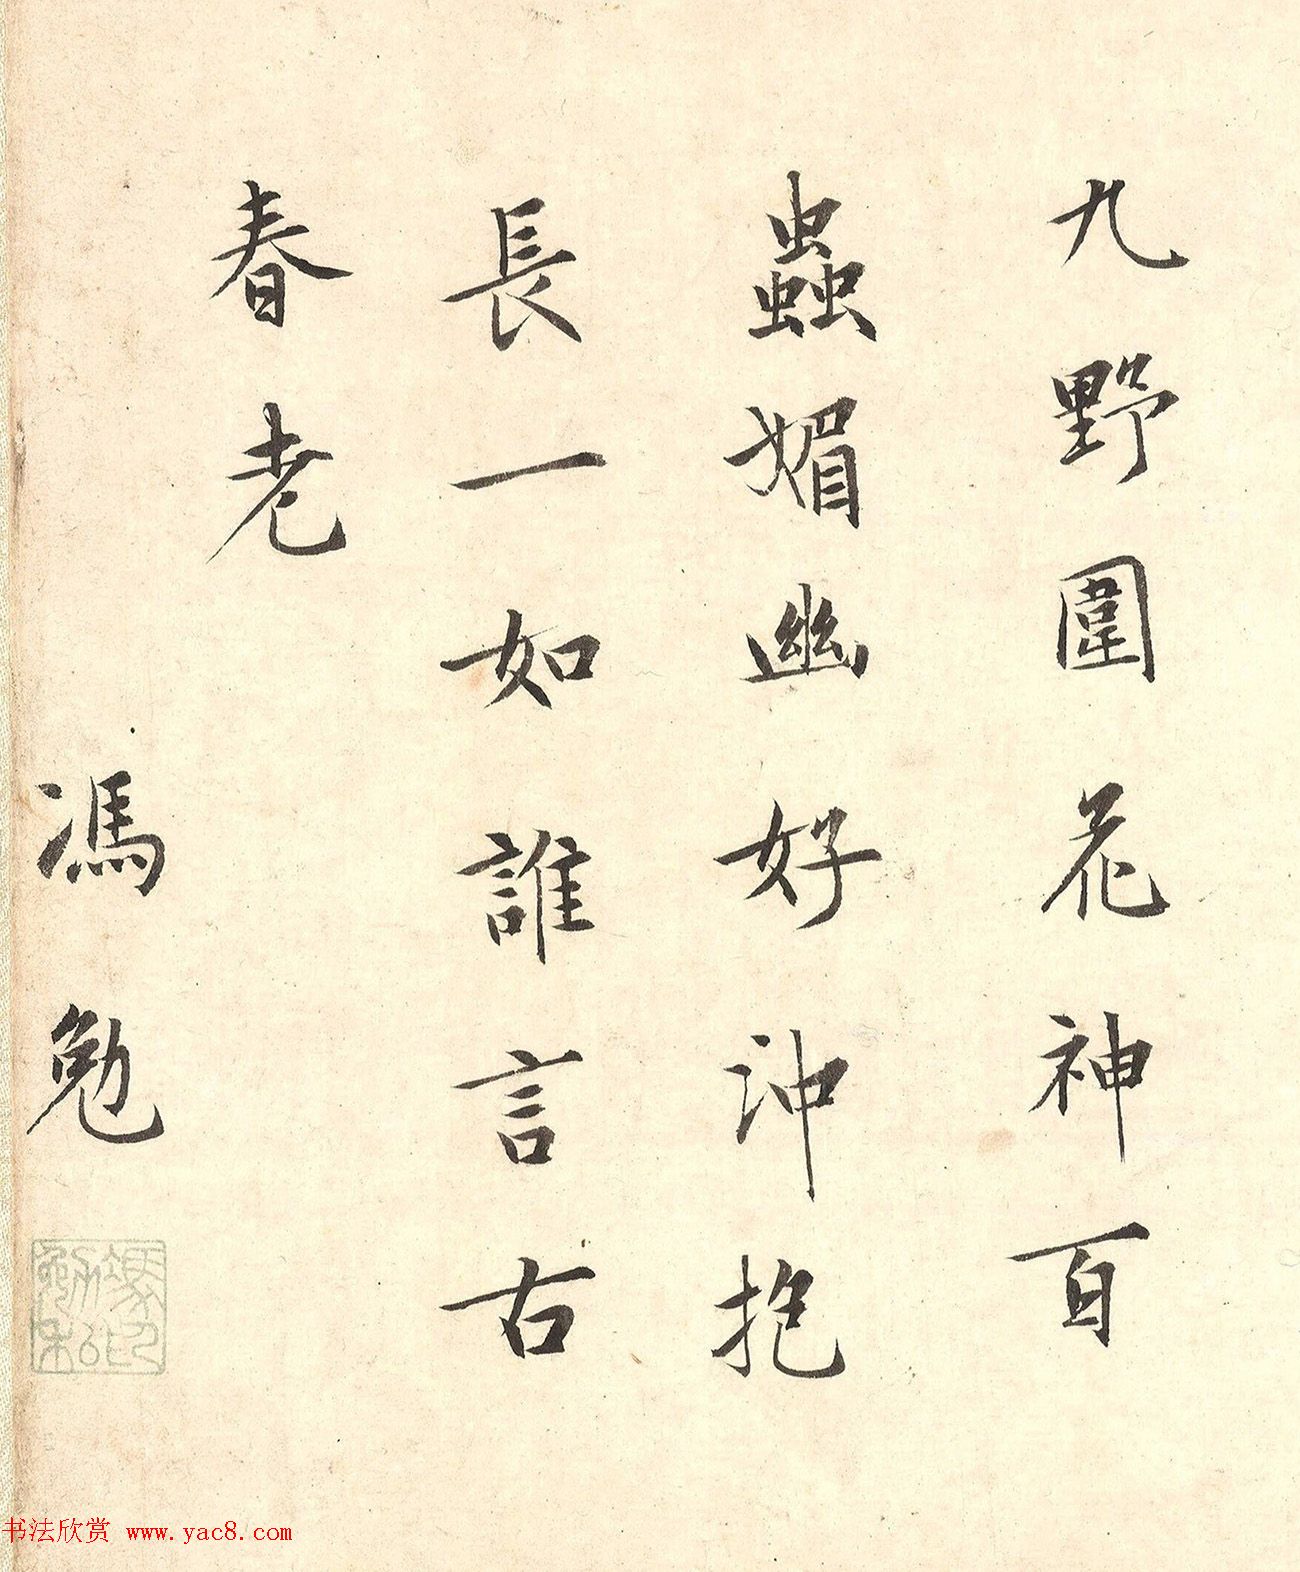 九野圍花神百
蟲媚幽好沖抱
長一如誰言古
春老
馮勉
书法欣赏 www.yac8.com